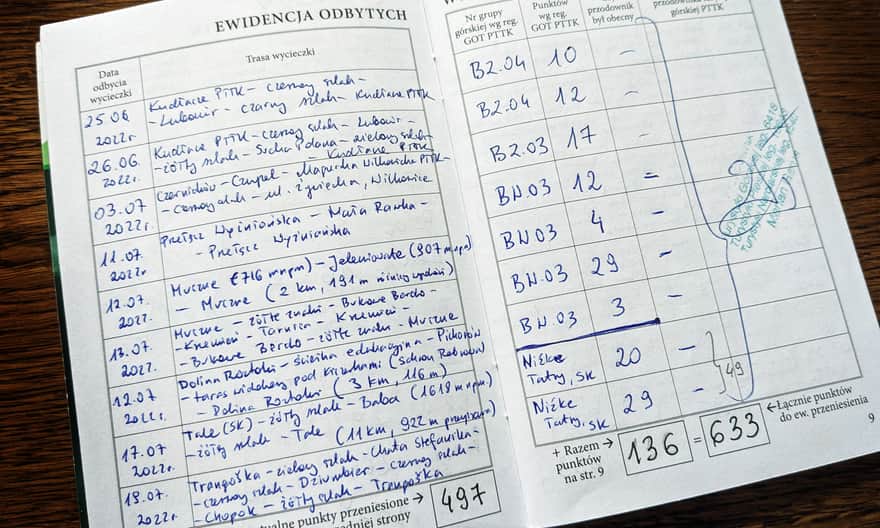 EWIDENCJA ODBYTYCH
Data
odbycia
wycieczki
Trasa wycieczki
25.06.
2022r.
Kudłacze PTTK – czerwony szlak –
– Lubomir – Czarny szlak – Kudłacze PTTK
26.06.
2022r.
Kudłacze PTTK – czerwony szlak – Lubomir –
– żółty szlak – Sucha Polana – zielony szlak –
– Kudłacze PTTK
03.07
2022r.
Czupel – Magurka Wilkowicka PTTK –
– czerwony szlak – ul. Wilkowice
11.07.
2022r
Przełęcz Wyżniańska – Mała Rawka –
– Przełęcz Wyżniańska
12.07.
2022.
Muczne (716 mnpm) – Jeleniowate (907 mnpm)
– Muczne (2 km, 191 m
13.07.
2022.
Muczne – żółte znaki – Bukowe Berdo –
– Krzemień – Tarnica – Krzemień –
– Bukowe Berdo – żółte znaki – Muczne
12.07
2022r.
Dolina Roztoki – ścieżka edukacyjna – Pichorów
– taras widokowy pod
– Dolina Roztoki (3 km, 116 m)
17.07
2022r.
Tale (SK) – żółty szlak – Baba (1619 m npm.)
– żółty szlak – Tale (11 km, 922 m
18.07.
2022r.
Trangoška – zielony szlak – Chata Štefánika –
– czerwony szlak – Dziumbier – czerwony szlak –
– Chopok – żółty szlak – Trangoška
punkty przeniesione →
strony
497
Nr grupy
górskiej wg reg.
GOT PTTK
Punktów
wg reg.
GOT PTTK
przodownik
był obecny
górskiej PTTK
BZ.04 10 –
BZ.04 12 –
BZ.03 17 –
BW.03 12 =
BW.03 4 –
BW.03 29 –
BW.03 3 –
Niżke
Tatry, SK 20 –
Niżke
Tatry, SK 29 –
49
+ Razem →
punktów
na str. 9
136 = 633
← Łącznie punktów
do ew. przeniesienia
9